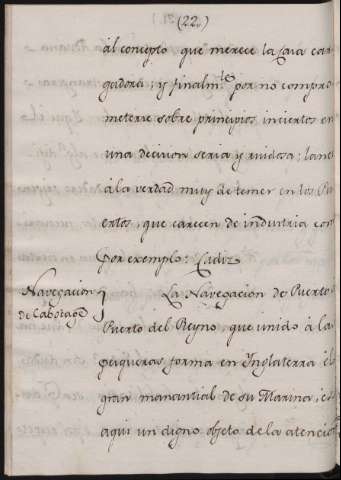 (22.)
al concepto que merece la Caxa car
gadora; y finalm.te por no compro
meterse sobre principios inciertos en
una decision seria y ruidosa; lance
à la verdad muy de temer en los Pu
ertos, que carecen de industria com
por exemplo: Cadiz
Navegacion
de Cabotage
La Navegacion de Puerto
Puerto del Reyno, que unido à la
pesqueras forma en Inglaterra el
gran manantial de su Marina, es
aqui un digno objeto de la atencio